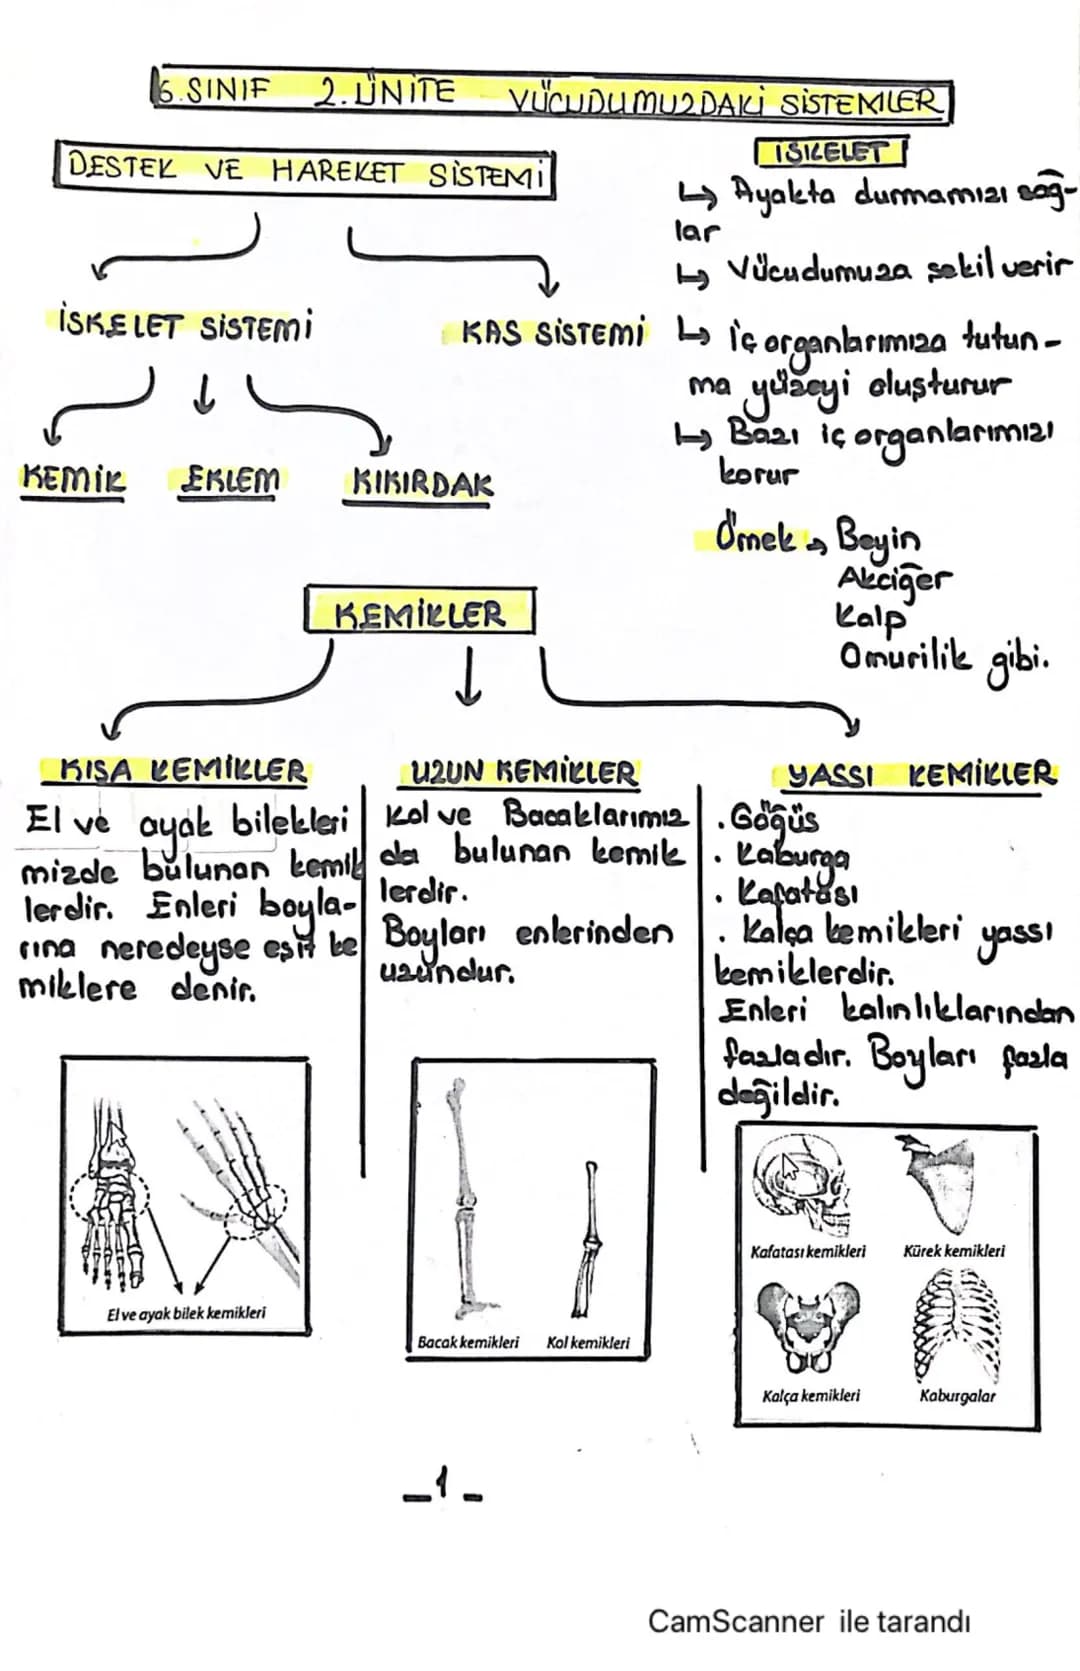 6.SINIF 2.ÜNİTE VÜCUDUMUZDAKİ SİSTEMLER
DESTEK VE HAREKET SİSTEMİ
İSKELET SİSTEMİ
KAS SİSTEMİ
KEMİK EKLEM KIKIRDAK
İSKELET
↳ Ayakta durmamızı sağ-
lar
↳ Vücudumuza şekil verir
↳ İç organlarımıza tutun-
ma yüzeyi oluşturur
↳ Bazı iç organlarımızı
korur
Örnek → Beyin
Akciğer
Kalp
Omurilik gibi.
KEMİKLER
KISA KEMİKLER
El ve ayak bilekleri
mizde bulunan kemik
lerdir. Enleri boyla-
rına neredeyse eşit ke
miklere denir.
El ve ayak bilek kemikleri
UZUN KEMİKLER
Kol ve Bacaklarımız
da bulunan kemik
lerdir.
Boyları enlerinden
uzundur.
Bacak kemikleri Kol kemikleri
YASSI KEMİKLER
. Göğüs
. Kaburga
. Kafatası
. Kalça kemikleri yassı
kemiklerdir.
Enleri kalınlıklarından
fazladır. Boyları fazla
değildir.
Kafatası kemikleri Kürek kemikleri
Kalça kemikleri Kaburgalar
-1-
CamScanner ile tarandı